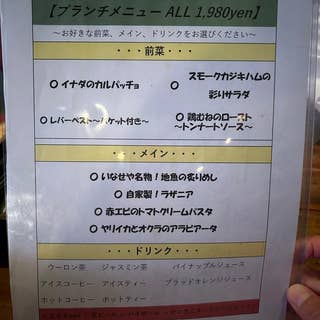 【ブランチメニュー ALL 1,980yen】
〜お好きな前菜、メイン、ドリンクをお選びください〜
・・・前菜・・・
○ イナダのカルパッチョ
○ スモークカジキハムの
彩りサラダ
○ レバーペスト〜バケット付き〜
○ 鶏むねのロースト
〜トンナートソース〜
・・・メイン・・・
○ いなせや名物！地魚の炙りめし
○ 自家製！ラザニア
○ 赤エビのトマトクリームパスタ
○ ヤリイカとオクラのアラビアータ
・・・ドリンク・・・
ウーロン茶 ジャスミン茶 パイナップルジュース
アイスコーヒー アイスティー ブラッドオレンジジュース
ホットコーヒー ホットティー